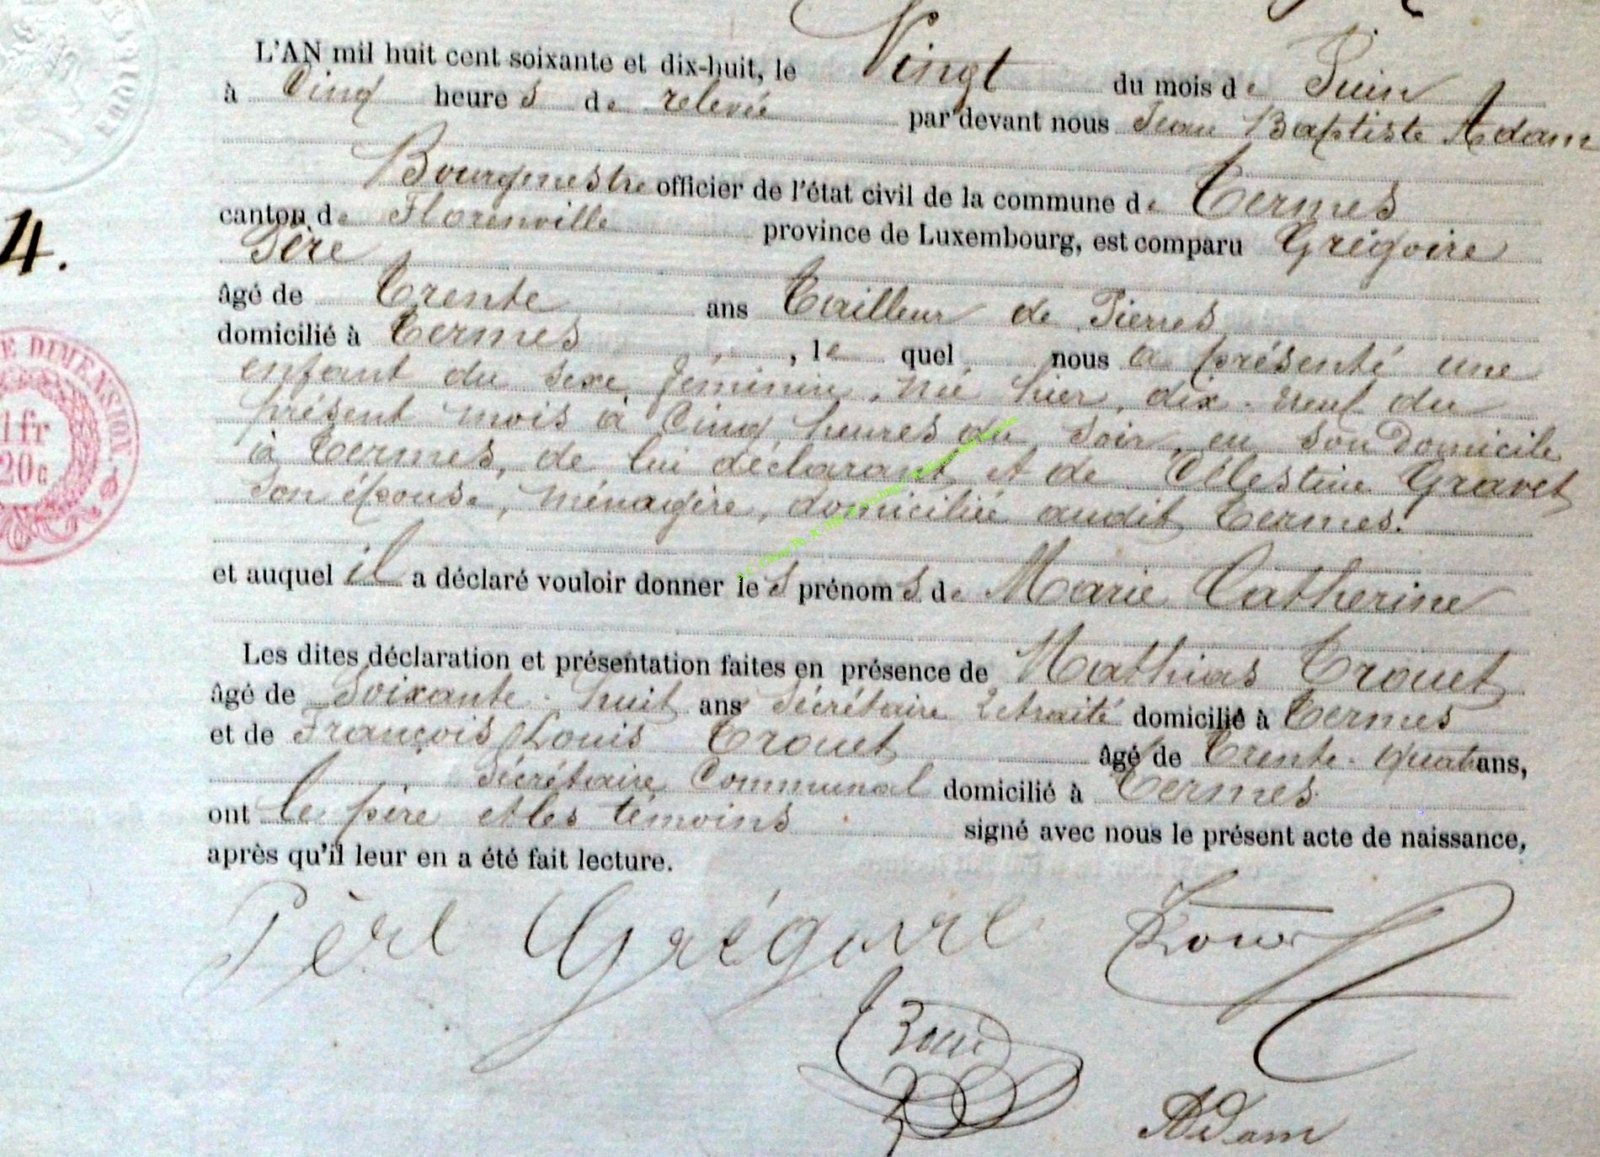 L'AN mil huit cent soixante et dix-huit, le Vingt du mois de Juin
à Cinq heures de relevée par devant nous Jean Baptiste Adam
Bourgmestre officier de l'état civil de la commune de Termes
canton de Florenville province de Luxembourg, est comparu Grégoire
Père
âgé de Trente ans Tailleur de Pierres
domicilié à Termes, le quel nous a présenté une
enfant du sexe féminin, né hier, dix-neuf du
présent mois à Cinq heures du soir, en son Domicile
à Termes, de lui déclarant et de Célestine Gravet
son épouse, ménagère, domiciliée audit Termes.
et auquel il a déclaré vouloir donner les prénoms de Marie Catherine
Les dites déclaration et présentation faites en présence de Mathias Trouet
âgé de Soixante-huit ans Sécrétaire retraité domicilié à Termes
et de François Louis Trouet âgé de Trente-quatre ans,
Sécrétaire Communal domicilié à Termes
ont le père et les témoins signé avec nous le présent acte de naissance,
après qu'il leur en a été fait lecture.
Père Grégoire
Adam
4.
DIMENSION.
1 fr
20c